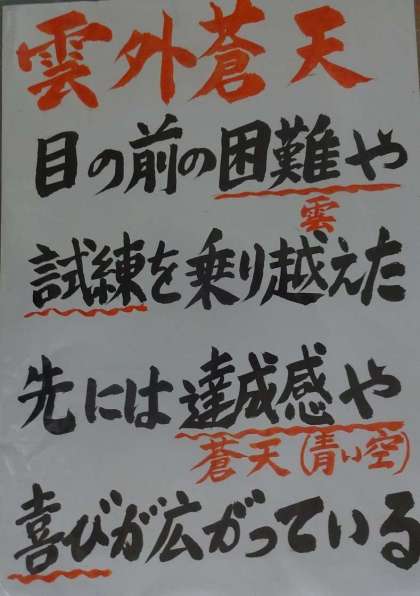 雲外蒼天
目の前の困難や
雲
試練を乗り越えた
先には達成感や
蒼天(青い空)
喜びが広がっている